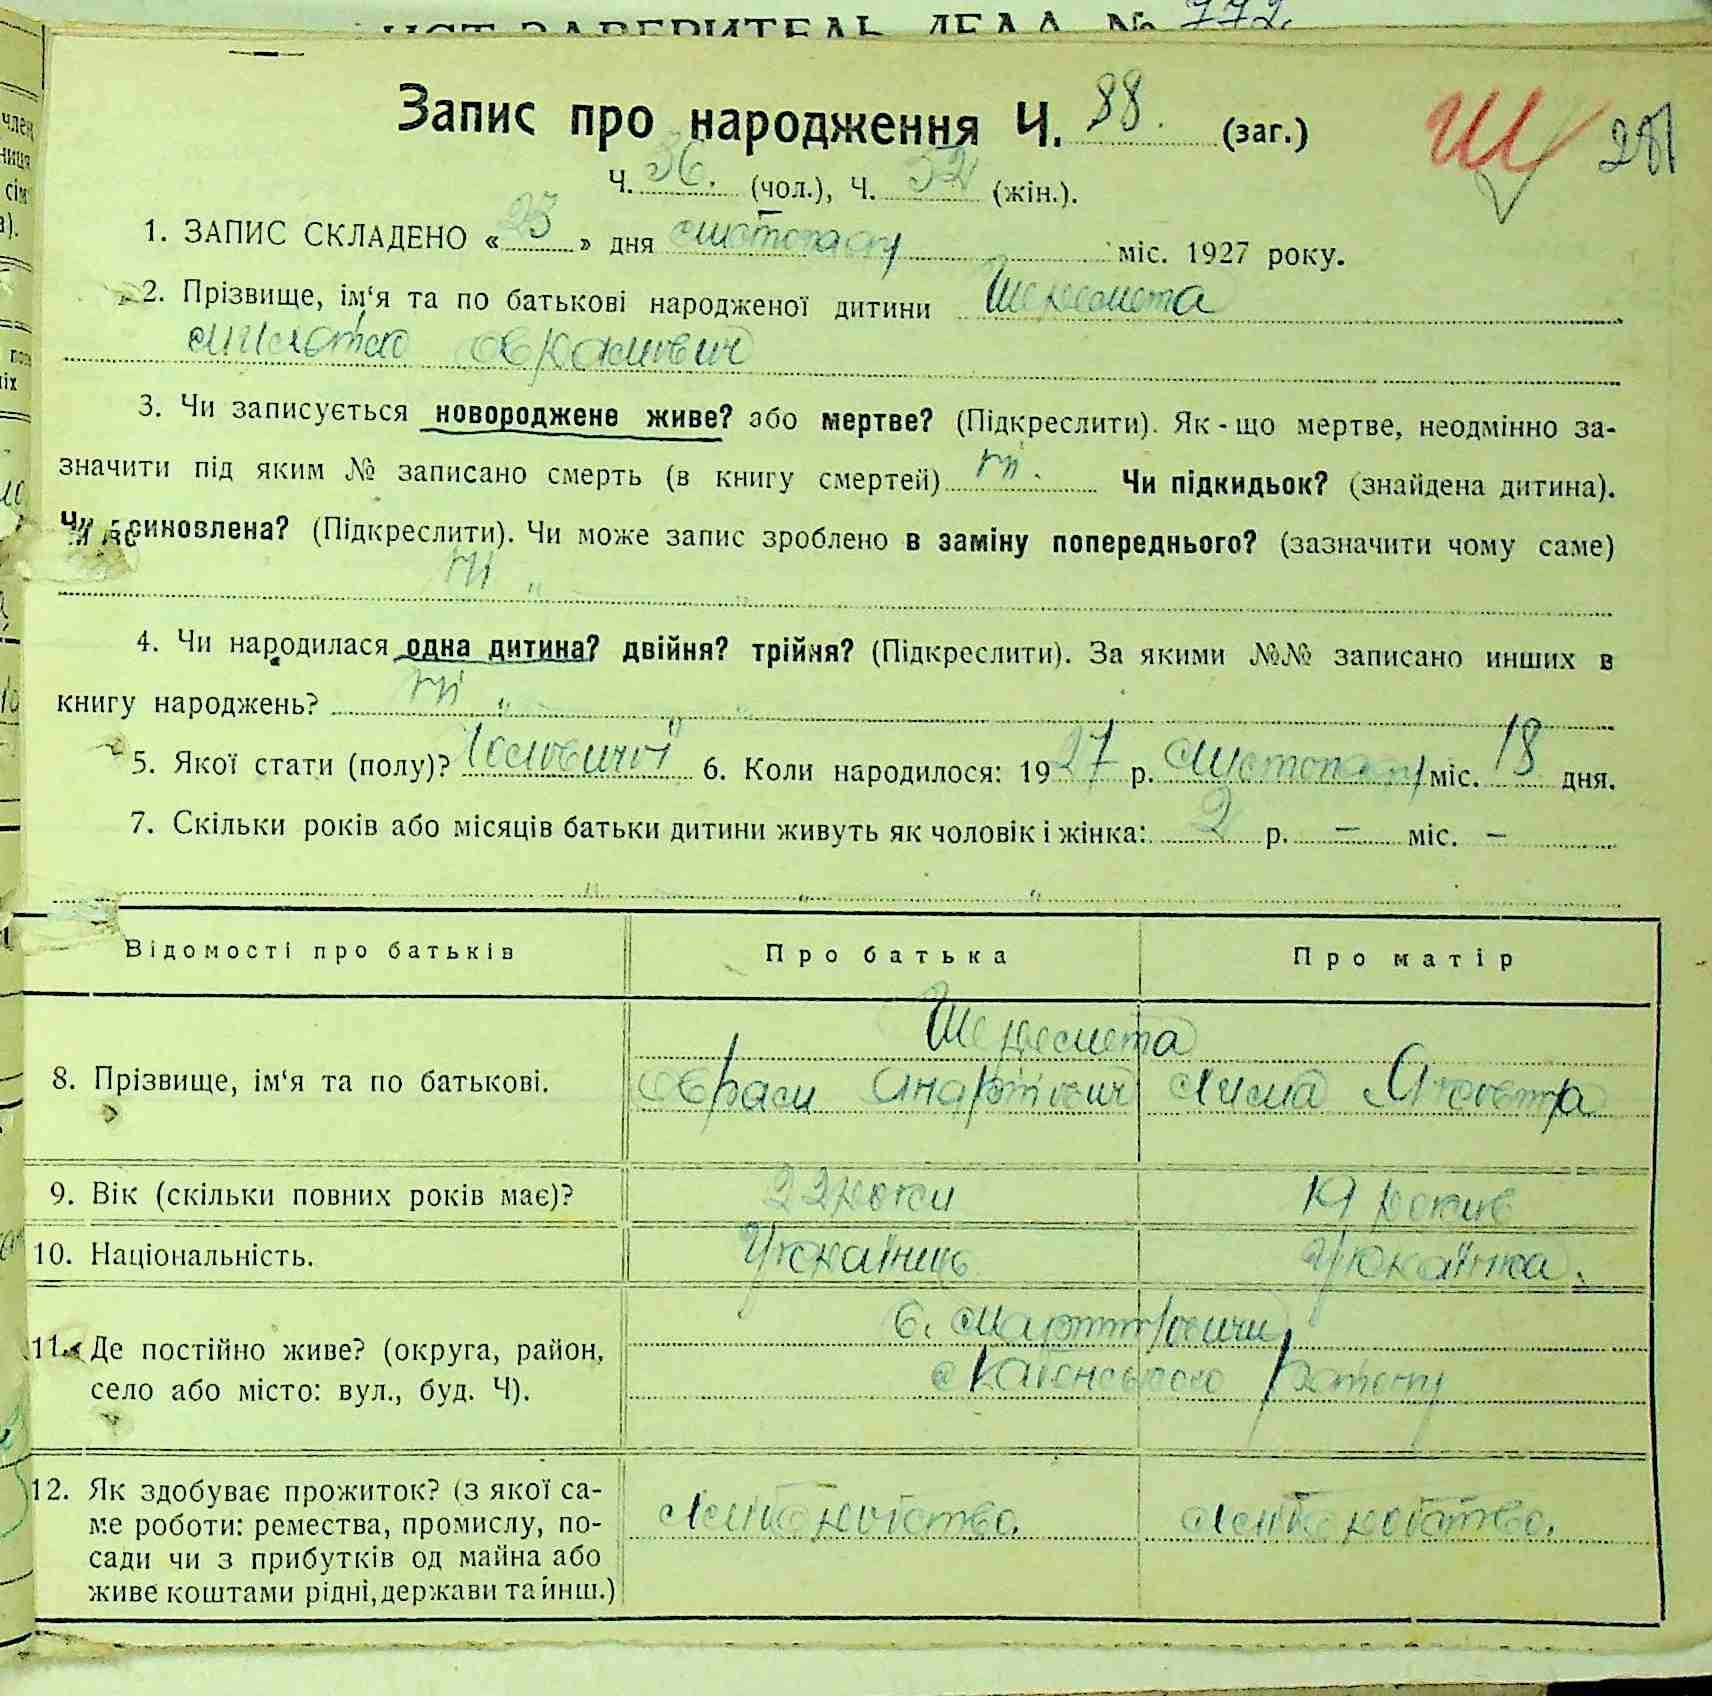 ИСТ-ЗАВЕРИТЕЛЬ ДЕЛА № 772
Запис про народження Ч. 88. (заг.)
Ш 281
Ч. 36. (чол.), Ч. 52 (жін.).
1. ЗАПИС СКЛАДЕНО « 23 » дня листопаду міс. 1927 року.
2. Прізвище, ім‘я та по батькові народженої дитини Шеремета
Аврамович
3. Чи записується новороджене живе? або мертве? (Підкреслити). Як-що мертве, неодмінно за-
значити під яким № записано смерть (в книгу смертей) ні. Чи підкидьок? (знайдена дитина).
Чи всиновлена? (Підкреслити). Чи може запис зроблено в заміну попереднього? (зазначити чому саме)
ні „ „
4. Чи народилася одна дитина? двійня? трійня? (Підкреслити). За якими №№ записано инших в
книгу народжень? ні „ „
5. Якої стати (полу)? Чоловичої 6. Коли народилося: 1927 р. листопаду міс. 18 дня.
7. Скільки років або місяців батьки дитини живуть як чоловік і жінка: 2 р. — міс. —
„ „ „
Відомості про батьків Про батька Про матір
Шеремета
8. Прізвище, ім‘я та по батькові. Аврам Яковна
9. Вік (скільки повних років має)? 22 роки 19 рокив
10. Національність. Українець Українка.
с. Мартиновичи
11. Де постійно живе? (округа, район,
Хабенського району
село або місто: вул., буд. Ч).
12. Як здобуває прожиток? (з якої са- Хлиборобство. Хлиборобство.
ме роботи: ремества, промислу, по-
сади чи з прибутків од майна або
живе коштами рідні, держави та инш.)